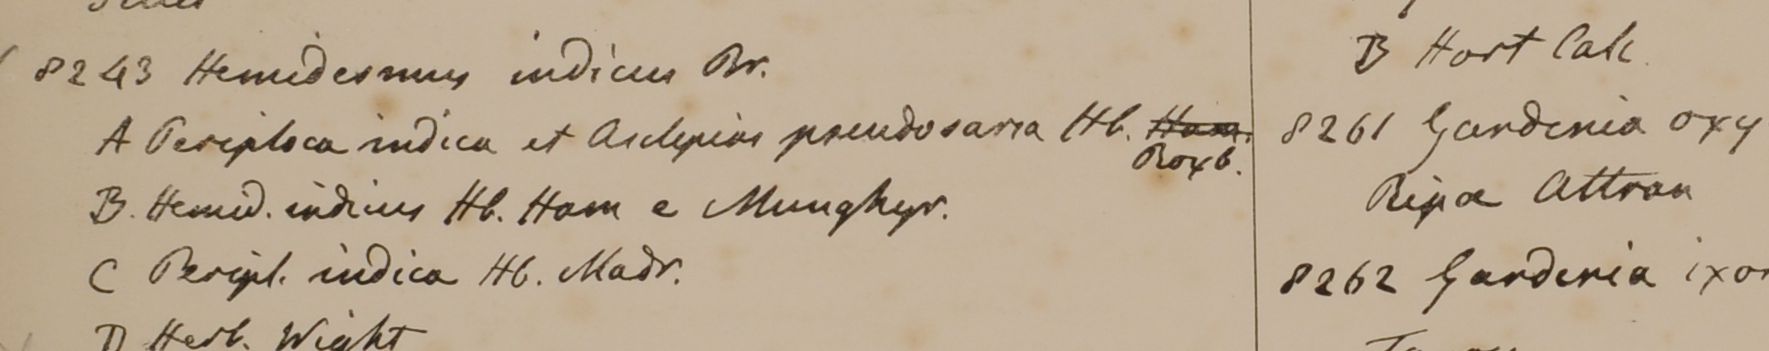 8243 Hemidesmus indicus Br.
A Periploca indica et Asclepias pseudosarsa Hb. Ham.
Roxb.
B. Hemid. indicus Hb. Ham e Munghyr.
C Peripl. indica Hb. Madr.
D Herb. Wight
B Hort Calc.
8261 Gardenia oxy
Ripa Attran
8262 Gardenia ixor